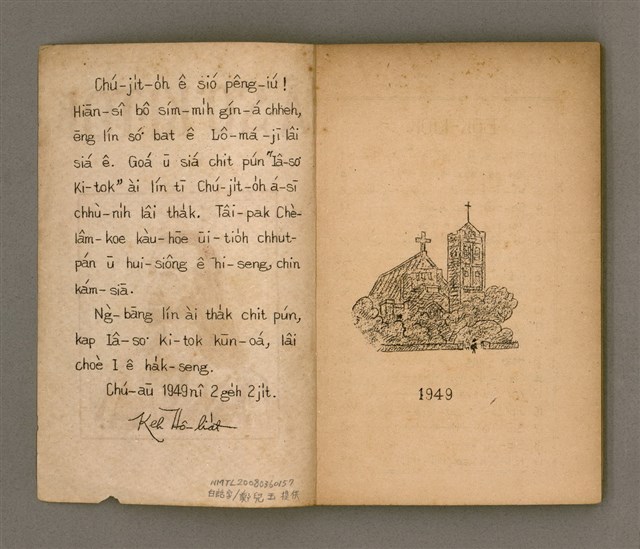 Chú-ji̍t-o̍h ê sió pêng-iú!
Hiān-sî bô sím-mi̍h gín-á chheh,
ēng lín só͘ bat ê Lô-má-jī lâi
siá ê. Goá ū siá chit pún "Iâ-so͘
Ki-tok" ài lín tī Chú-ji̍t-o̍h á-sī
chhù-ni̍h lâi tha̍k. Tâi-pak Chè-
lâm-koe kàu-hōe ūi-tio̍h chhut-
pán ū hui-siông ê hi-seng, chin
kám-siā.
Ǹg-bāng lín ài tha̍k chit pún,
kap Iâ-so͘ Ki-tok kūn-oá, lâi
choè I ê ha̍k-seng.
Chú-aū 1949 nî 2 ge̍h 2 ji̍t.
Keh Hô-lia̍t
NMTL20080360157
白話字/鄭兒玉 提供
1949